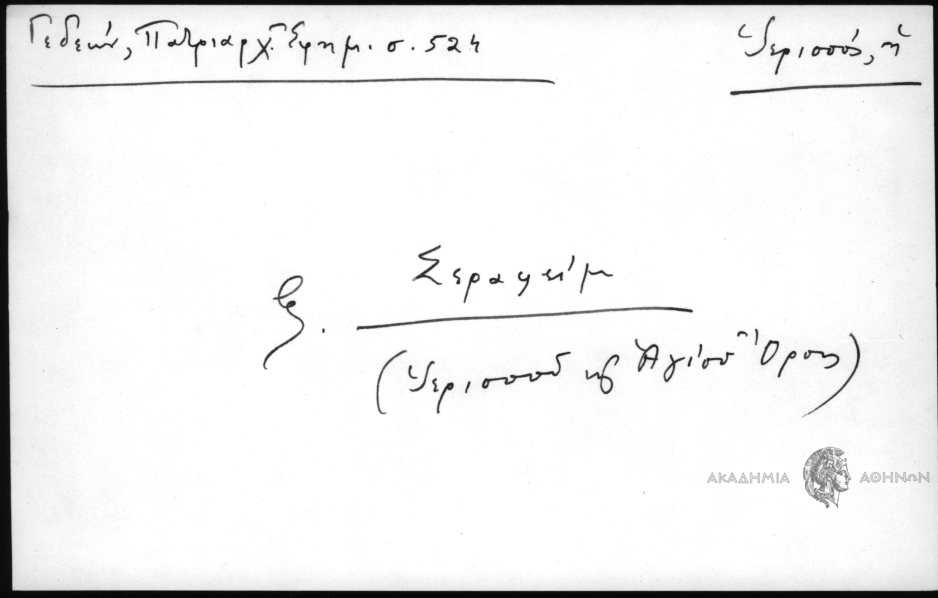 Γεδεών, Πατριαρχ. Ἐφημ. σ. 524
Ἱερισσός, ἡ
Ἐ. Σεραφείμ
(Ἱερισσοῦ κ Ἁγίου Ὄρους)
ΑΚΑΔΗΜΙΑ ΑΘΗΝΩΝ